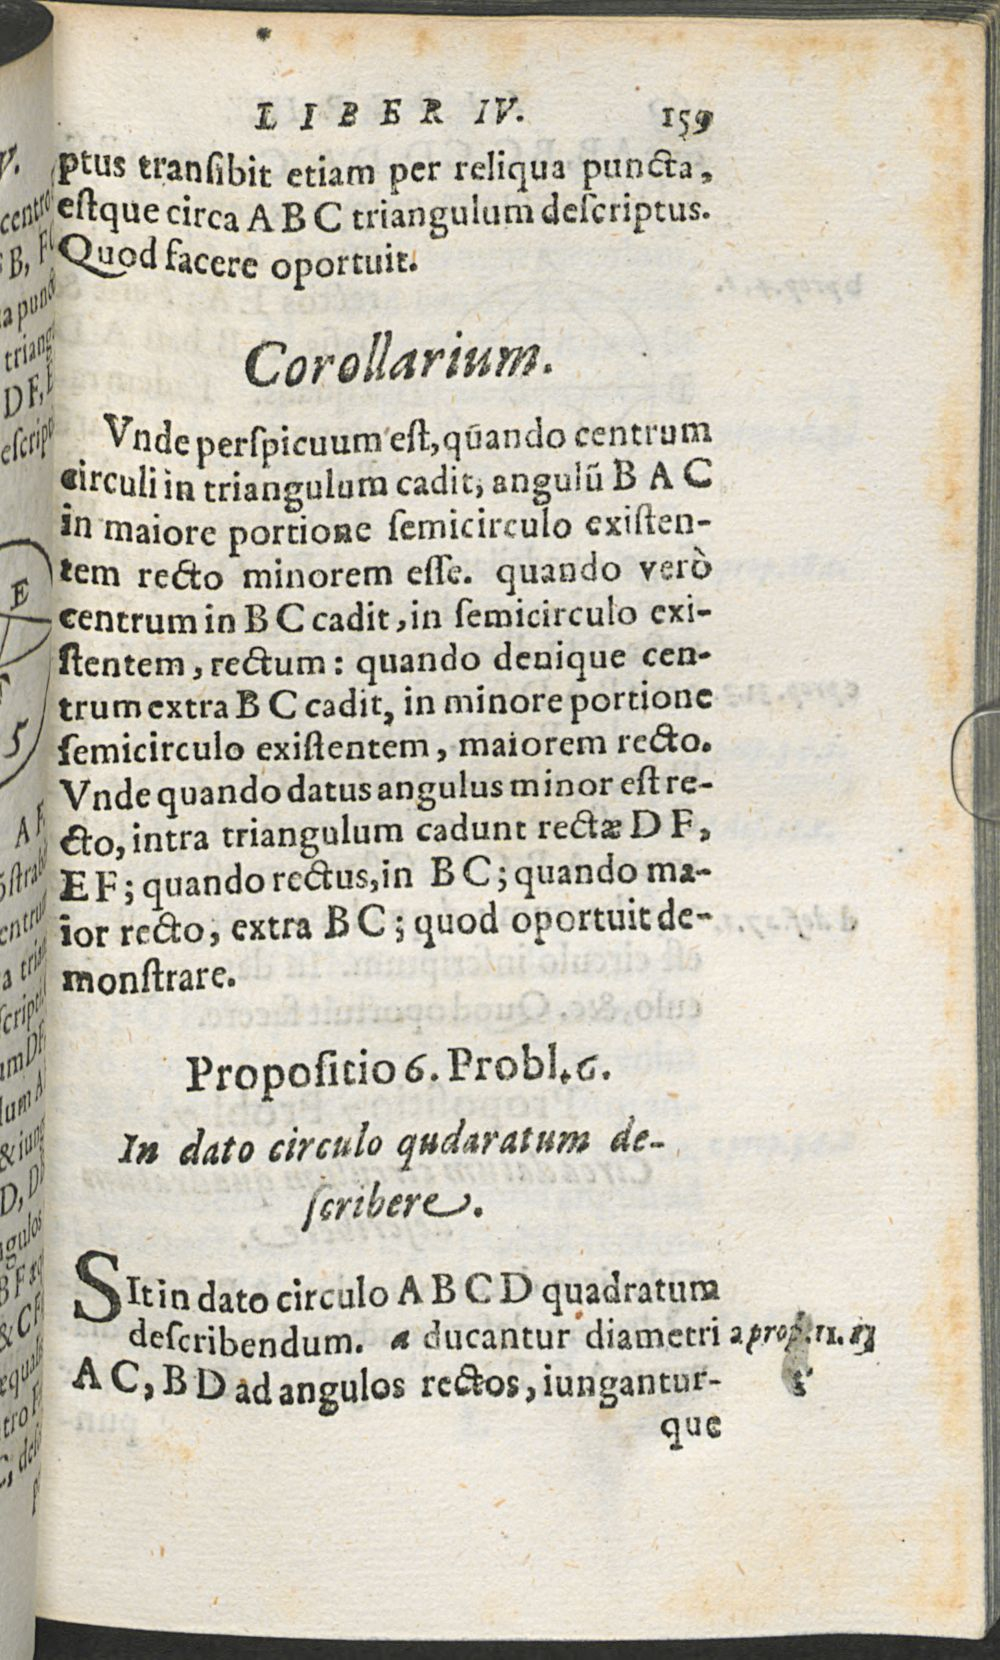 LIBER IV. 159
ptus transibit etiam per reliqua puncta,
estque circa A B C triangulum descriptus.
Quod facere oportuit.
Corollarium.
Vnde perspicuum est, qūando centrum
circuli in triangulum cadit, angulū B A C
in maiore portione semicirculo existen-
tem recto minorem esse. quando verò
centrum in B C cadit, in semicirculo exi-
stentem, rectum: quando denique cen-
trum extra B C cadit, in minore portione
semicirculo existentem, maiorem recto.
Vnde quando datus angulus minor est re-
cto, intra triangulum cadunt rectæ D F,
E F; quando rectus, in B C; quando ma-
ior recto, extra B C; quod oportuit de-
monstrare.
Propositio 6. Probl. 6.
In dato circulo qudaratum de-
scribere.
SIt in dato circulo A B C D quadratum
describendum. a ducantur diametri a prop. 11.
A C, B D ad angulos rectos, iungantur-
que
V.
centro
B, F
triang
D F, E
E
F
5
A F
D, D
B F
& C F